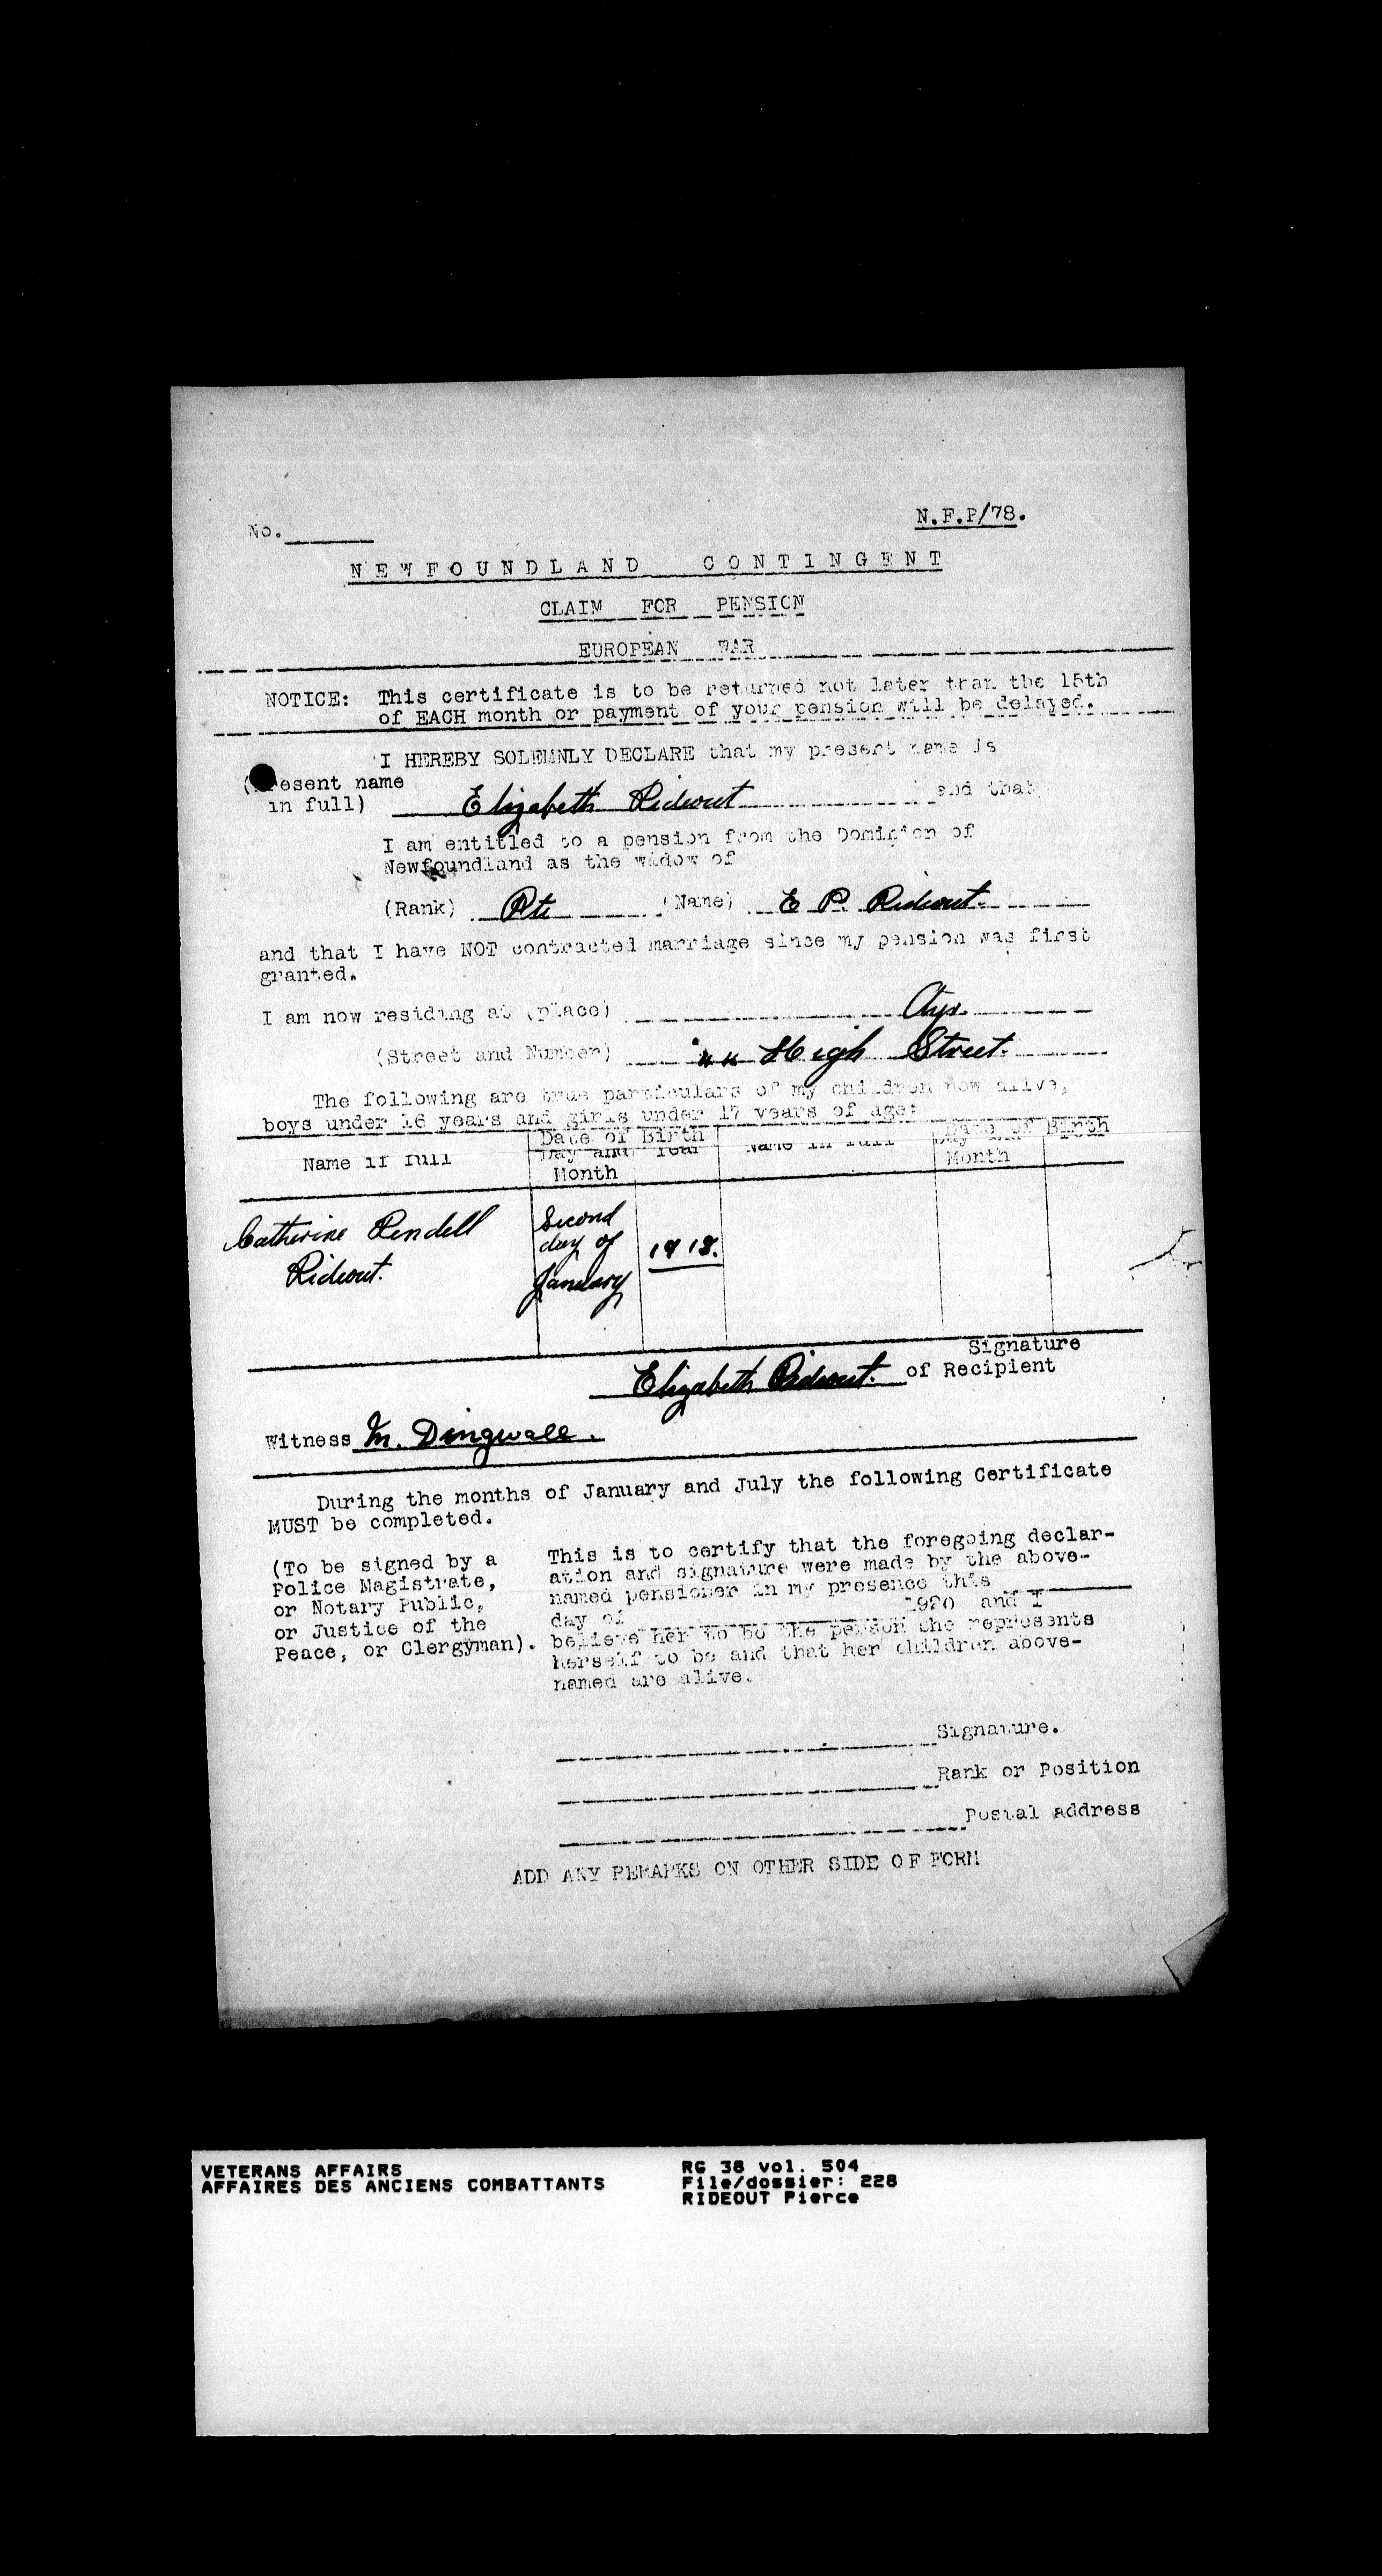 No.
N.F.P/78.
NEWFOUNDLAND CONTINGENT
CLAIM FOR PENSION
EUROPEAN WAR
NOTICE: This certificate is to be returned not later than the 15th
of EACH month or payment of your pension will be delayed.
I HEREBY SOLEMNLY DECLARE that my present name is
(Present name
in full) Elizabeth Rideout and that
I am entitled to a pension from the Dominion of
Newfoundland as the widow of
(Rank) Pte (Name) E P. Rideout.
and that I have NOT contracted marriage since my pension was first
granted.
I am now residing at (place) Ayr.
(Street and Number) High Street.
The following are true particulars of my children now alive,
boys under 16 years and girls under 17 years of age:
Date of Birth Date of Birth
Name in full Day and Year Name in full Day and
Month Month
Catherine Rendell Second
day of 1918.
Rideout. January
Signature
Elizabeth Rideout. of Recipient
Witness M. Dingwall.
During the months of January and July the following Certificate
MUST be completed.
(To be signed by a
Police Magistrate,
or Notary Public,
or Justice of the
Peace, or Clergyman).
This is to certify that the foregoing declar-
ation and signature were made by the above-
named pensioner in my presence this
day of 1920 and I
believe her to be the person she represents
herself to be and that her children above-
named are alive.
Signature.
Rank or Position
Postal address
ADD ANY REMARKS ON OTHER SIDE OF FORM
VETERANS AFFAIRS
AFFAIRES DES ANCIENS COMBATTANTS
RG 38 vol. 504
File/dossier: 228
RIDEOUT Pierce